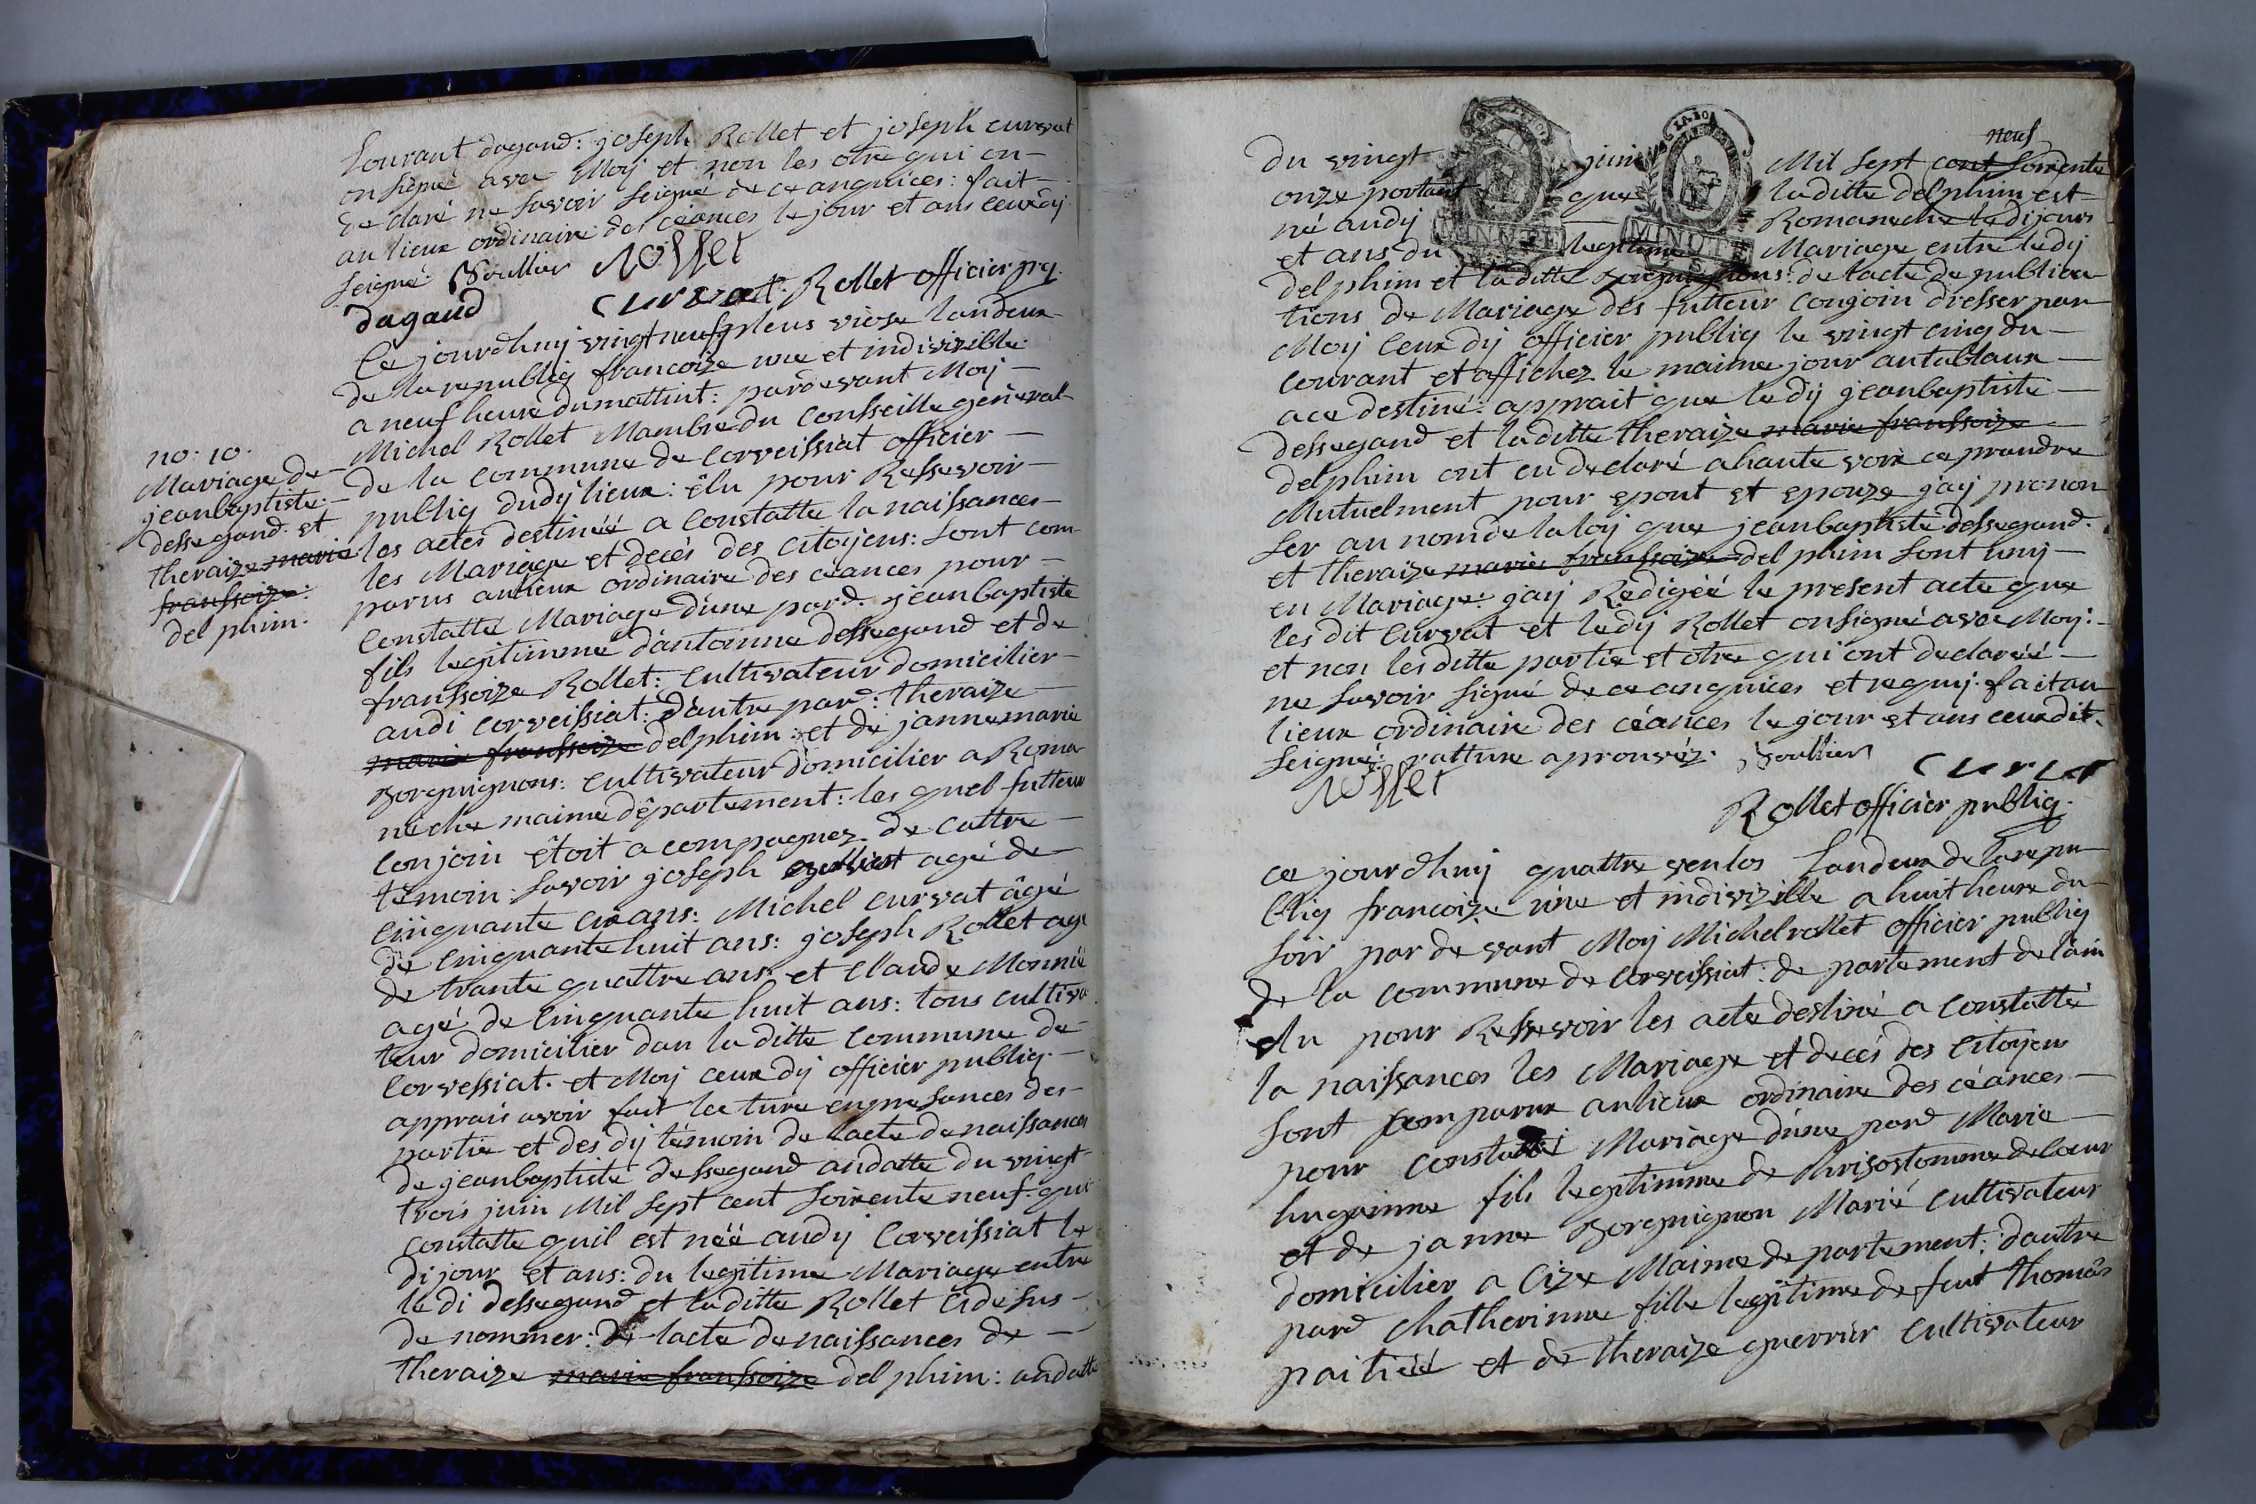 Lourant dagand: joseph Rollet et joseph curvat
on signé avec Moy et non les otre qui on
de claré ne savoir seigné de ce anquices: fait
au lieux ordinaire des céances le jour et ans ceux dij
seigné Soullier rollet
dagand curvat: Rollet officier pq.
Ce jourdhuij vingt neuf pleus viose landeux
de la republiq francoize une et indivizible
a neuf heure du mattint: par devant Moij
Michel Rollet Mambre du Consseille general
no. 10.
Mariage de
jeanbaptiste
dessegand et
theraize marie
franssoize:
del phim.
de la Commune de Corveissiat officier
publiq dudij lieux: élu pour Ressevoir
les actes destinéé a Constatte la naissances
les Mariage et decés des citoijens: sont com
parus au lieux ordinaire des céances pour
Constatté Mariage d'une pard. jeanbaptiste
fils legitimme d'antoinne dessegand et de
franssoize Rollet: cultivateur domicilier
audi corveissiat: d'autre pard: theraize
marie franssoize delphim: et de jannemarie
Borguignons: cultivateur domicilier a Roma
neche maime département: les quel futteur
conjoin étoit a compagnez de cattre
témoin: savoir joseph agé de
cinquante cix ans: Michel curvat âgé
de cinquante huit ans: joseph Rollet agé
de trante quattre ans: et claude Monnié
agé de cinquante huit ans: tous cultiva
teur domicilier dan la ditte commune de
Corvessiat. et Moij ceux dij officier publiq.
apprais avoir fait lecture en presances des
partie et des dij témoin de lacte de naissances
de jeanbaptiste dessegand audatte du vingt
trois juin Mil sept cent soixente neuf. qui
constatte quil est néé audij Corveissiat le
dijour et ans: du legitime Mariage entre
le di dessegand et la ditte Rollet ci desus
de nommer: de lacte de naissances de
theraize marie franssoize del phim: audatte
du vingt juin Mil sept cent soixente
neuf
onze portant que la ditte delphim est
né audij Romaneche le dijour
et ans du legitime Mariage entre le dij
delphim et la ditte Borguignons: de lacte de publica
tions de Mariage des futteur conjoin dresser par
Moij ceux dij officier publiq le vingt cinq du
courant et affichez le maime jour autablaux
ace destiné: apprait que le dij jeanbaptiste
dessegand et laditte theraize marie franssoize
delphim ont eu declaré ahaute voix ce prandre
Mutuelment pour epout et epouze jaij pronon
ser au nom de la loij que jeanbaptiste dessegand.
et theraize marie franssoize delphim sont unij
en Mariage: jaij Redigéé le present acte que
les dit curvat et le dij Rollet on signé avec Moij:
et non les ditte partie et otre qui ont declaréé
ne savoir signé de ce anquices et requij. fait au
lieux ordinaire des céances le jour et ans ceux dit.
seigné: ratture aprouvéz. Soullier
rollet curvat
Rollet officier publiq.
ce jourdhuij quattre ventos landeux de la repu
bliq francoize une et indivizille a huit heure du
soir par devant Moij Michel rollet officier publiq
de la commune de Corveissiat: de partement de l'ain
elu pour Ressevoir les acte destiné a constatté
la naissances les Mariage et decés des citoijen
sont comparux aulieux ordinaire des céances
pour constatté Mariage d'une pard Marie
huguinne fils legitimme de chrisostomme delacur
et de janne Borguignon Marié cultivateur
domicilier a Cize Maime de partement: dautre
pard Chatherinne fille legitime de feut thomas
paitiéé et de theraize guerrier cultivateur
MINUTE
MINUTE